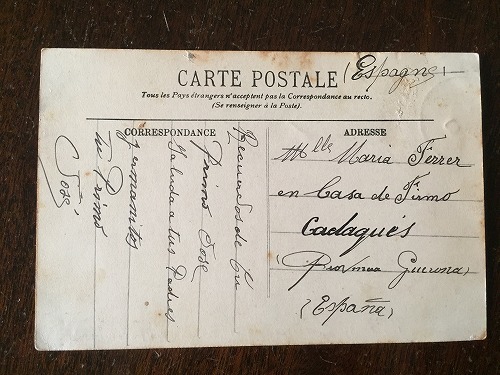 CARTE POSTALE
(Espagne)
Tous les Pays étrangers n'acceptent pas la Correspondance au recto.
(Se renseigner à la Poste).
CORRESPONDANCE
ADRESSE
Recuerdos de tu
Primo José
Saluda a tus Padres
y ermanitos
tu Primo
José
Mlle Maria Ferrer
en Casa de Firmo
Cadaqués
(Provincia Guerona)
(España)